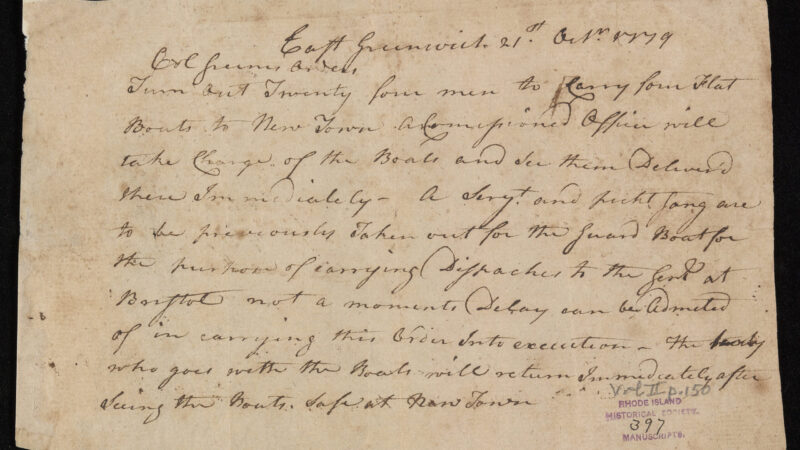 East Greenwich 21st Octr 1779
Col Greenes Orders
Turn Out Twenty four men to Carry four Flat
Boats to New Town A Comissioned Officer will
take Charge of the Boats and See them Deliver'd
there Immediately - A Sergt. and pickt Gang are
to be previously Taken out for the Guard Boat for
the purpose of carrying Dispaches to the Genl. at
Bristol not a moments Delay can be Admited
of in carrying this Order Into execution - The
who goes with the Boats will return Immediately after
Seing the Boats Safe at New Town
Vol II p. 150
RHODE ISLAND
HISTORICAL SOCIETY.
397
MANUSCRIPTS.